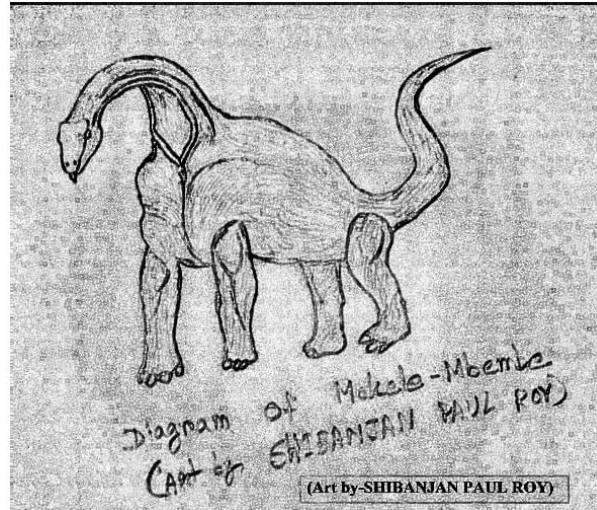 Diagram of Mokele-Mbembe
(Art by SHIBANJAN PAUL ROY)
(Art by-SHIBANJAN PAUL ROY)